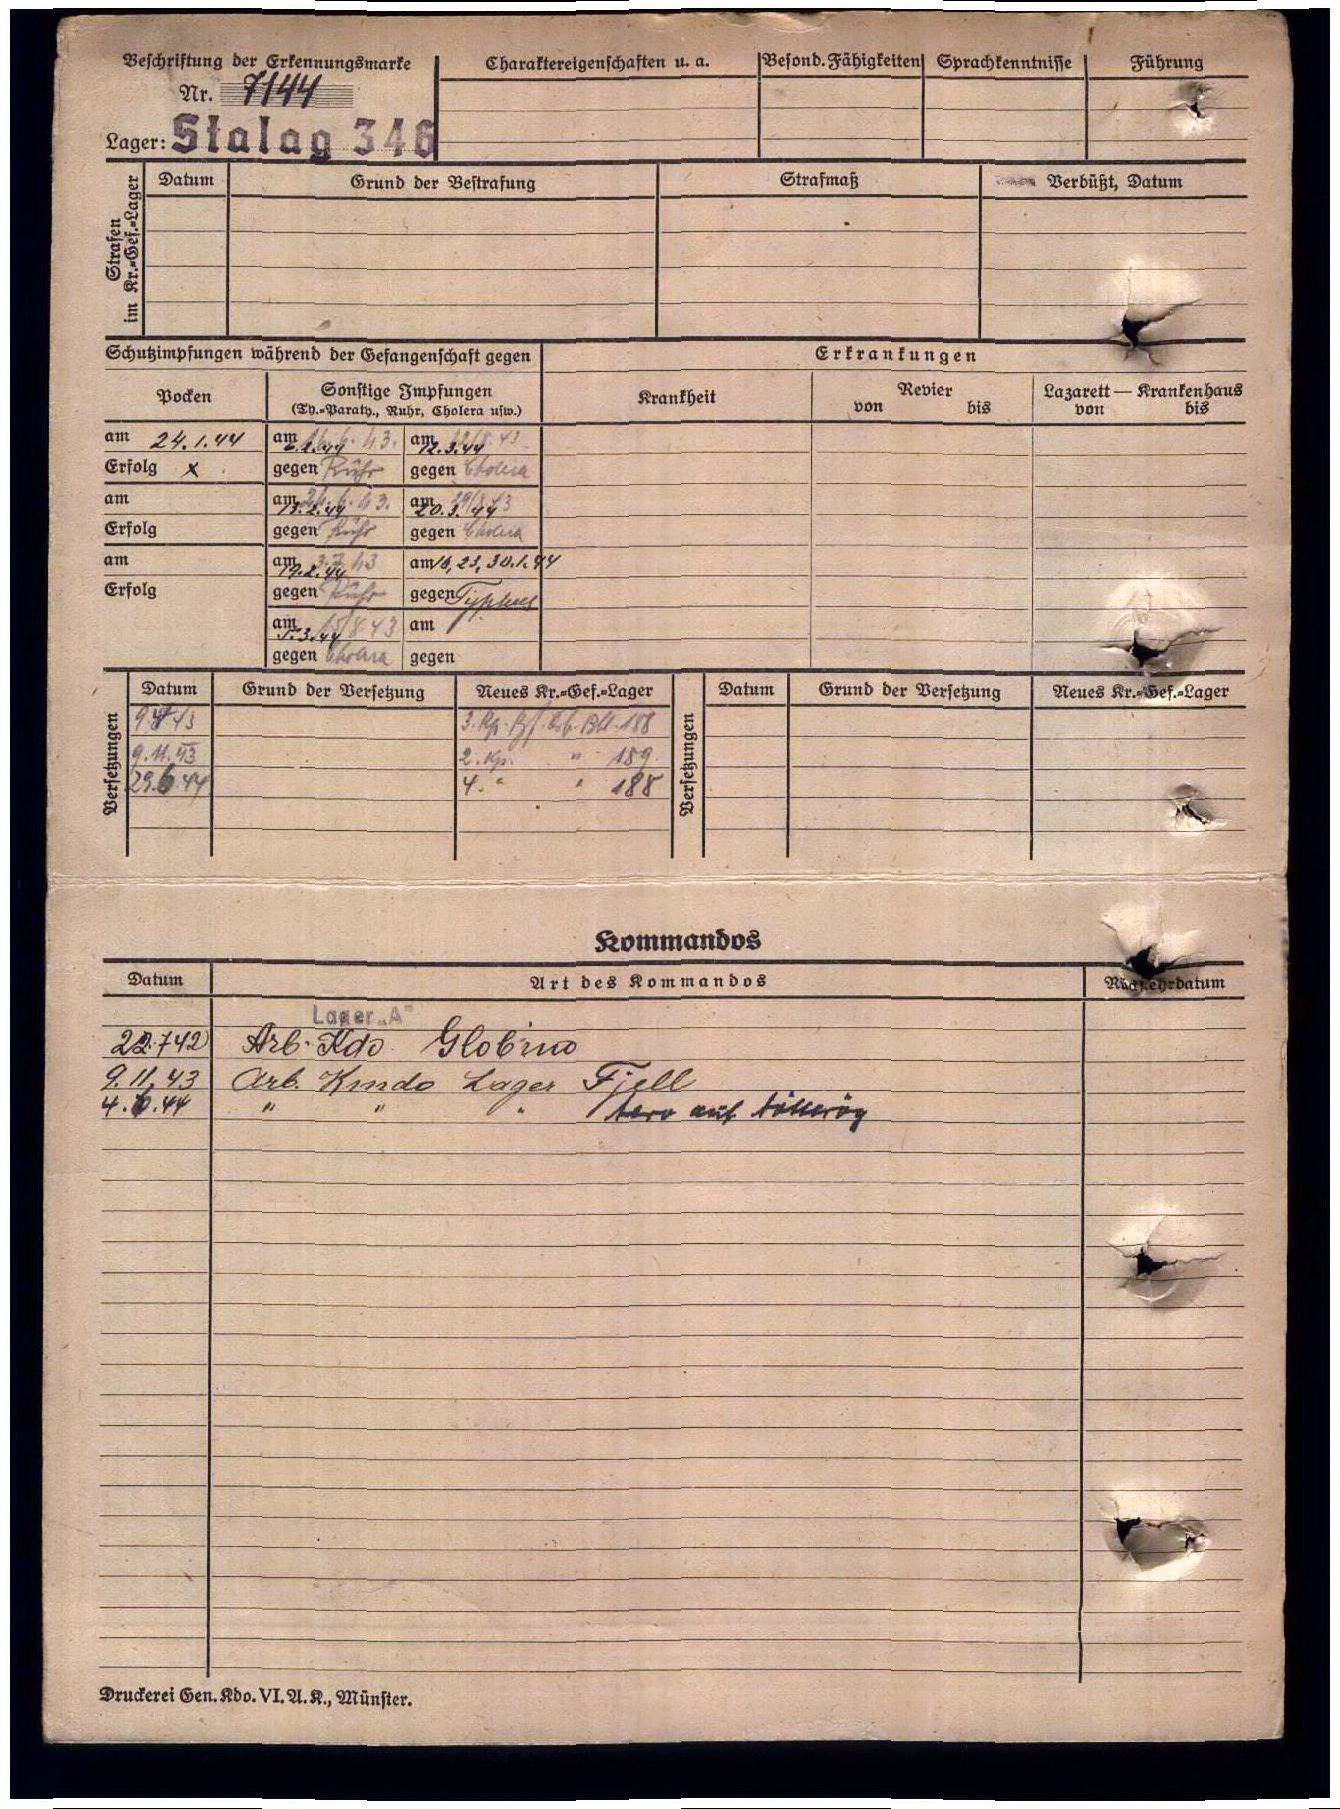 Beschriftung der Erkennungsmarke
Nr. 7144
Lager: Stalag 346
Charaktereigenschaften u. a.
Besond. Fähigkeiten
Sprachkenntnisse
Führung
Strafen
im Kr.=Gef.=Lager
Datum Grund der Bestrafung Strafmaß Verbüßt, Datum
Schutzimpfungen während der Gefangenschaft gegen
Erkrankungen
Pocken
Sonstige Impfungen
(Ty.=Paraty., Ruhr, Cholera usw.)
Krankheit
Revier
von bis
Lazarett — Krankenhaus
von bis
am 24.1.44 am 16.6.43. am
12.3.44
Erfolg x gegen Ruhr gegen Cholera
am am 43. am
13.2.44 20.3.44
Erfolg gegen Ruhr gegen Cholera
am am 3.7.43 am 16, 23, 30.1.44
19.2.44
Erfolg gegen Ruhr gegen Typhus
am 15/8 43 am
5.3.44
gegen Cholera gegen
Versetzungen
Datum Grund der Versetzung Neues Kr.=Gef.=Lager
3. Kp. Btl. 188
9.11.43 2. Kp. " 189
29.6.44 4. " " 188
Versetzungen
Datum Grund der Versetzung Neues Kr.=Gef.=Lager
Kommandos
Datum Art des Kommandos Rückkehrdatum
Lager „A“
22.7.42 Arb. Kdo. Globino
9.11.43 Arb. Kmdo Lager Fjell
4.6.44 " " " auf
Druckerei Gen. Kdo. VI. A. K., Münster.